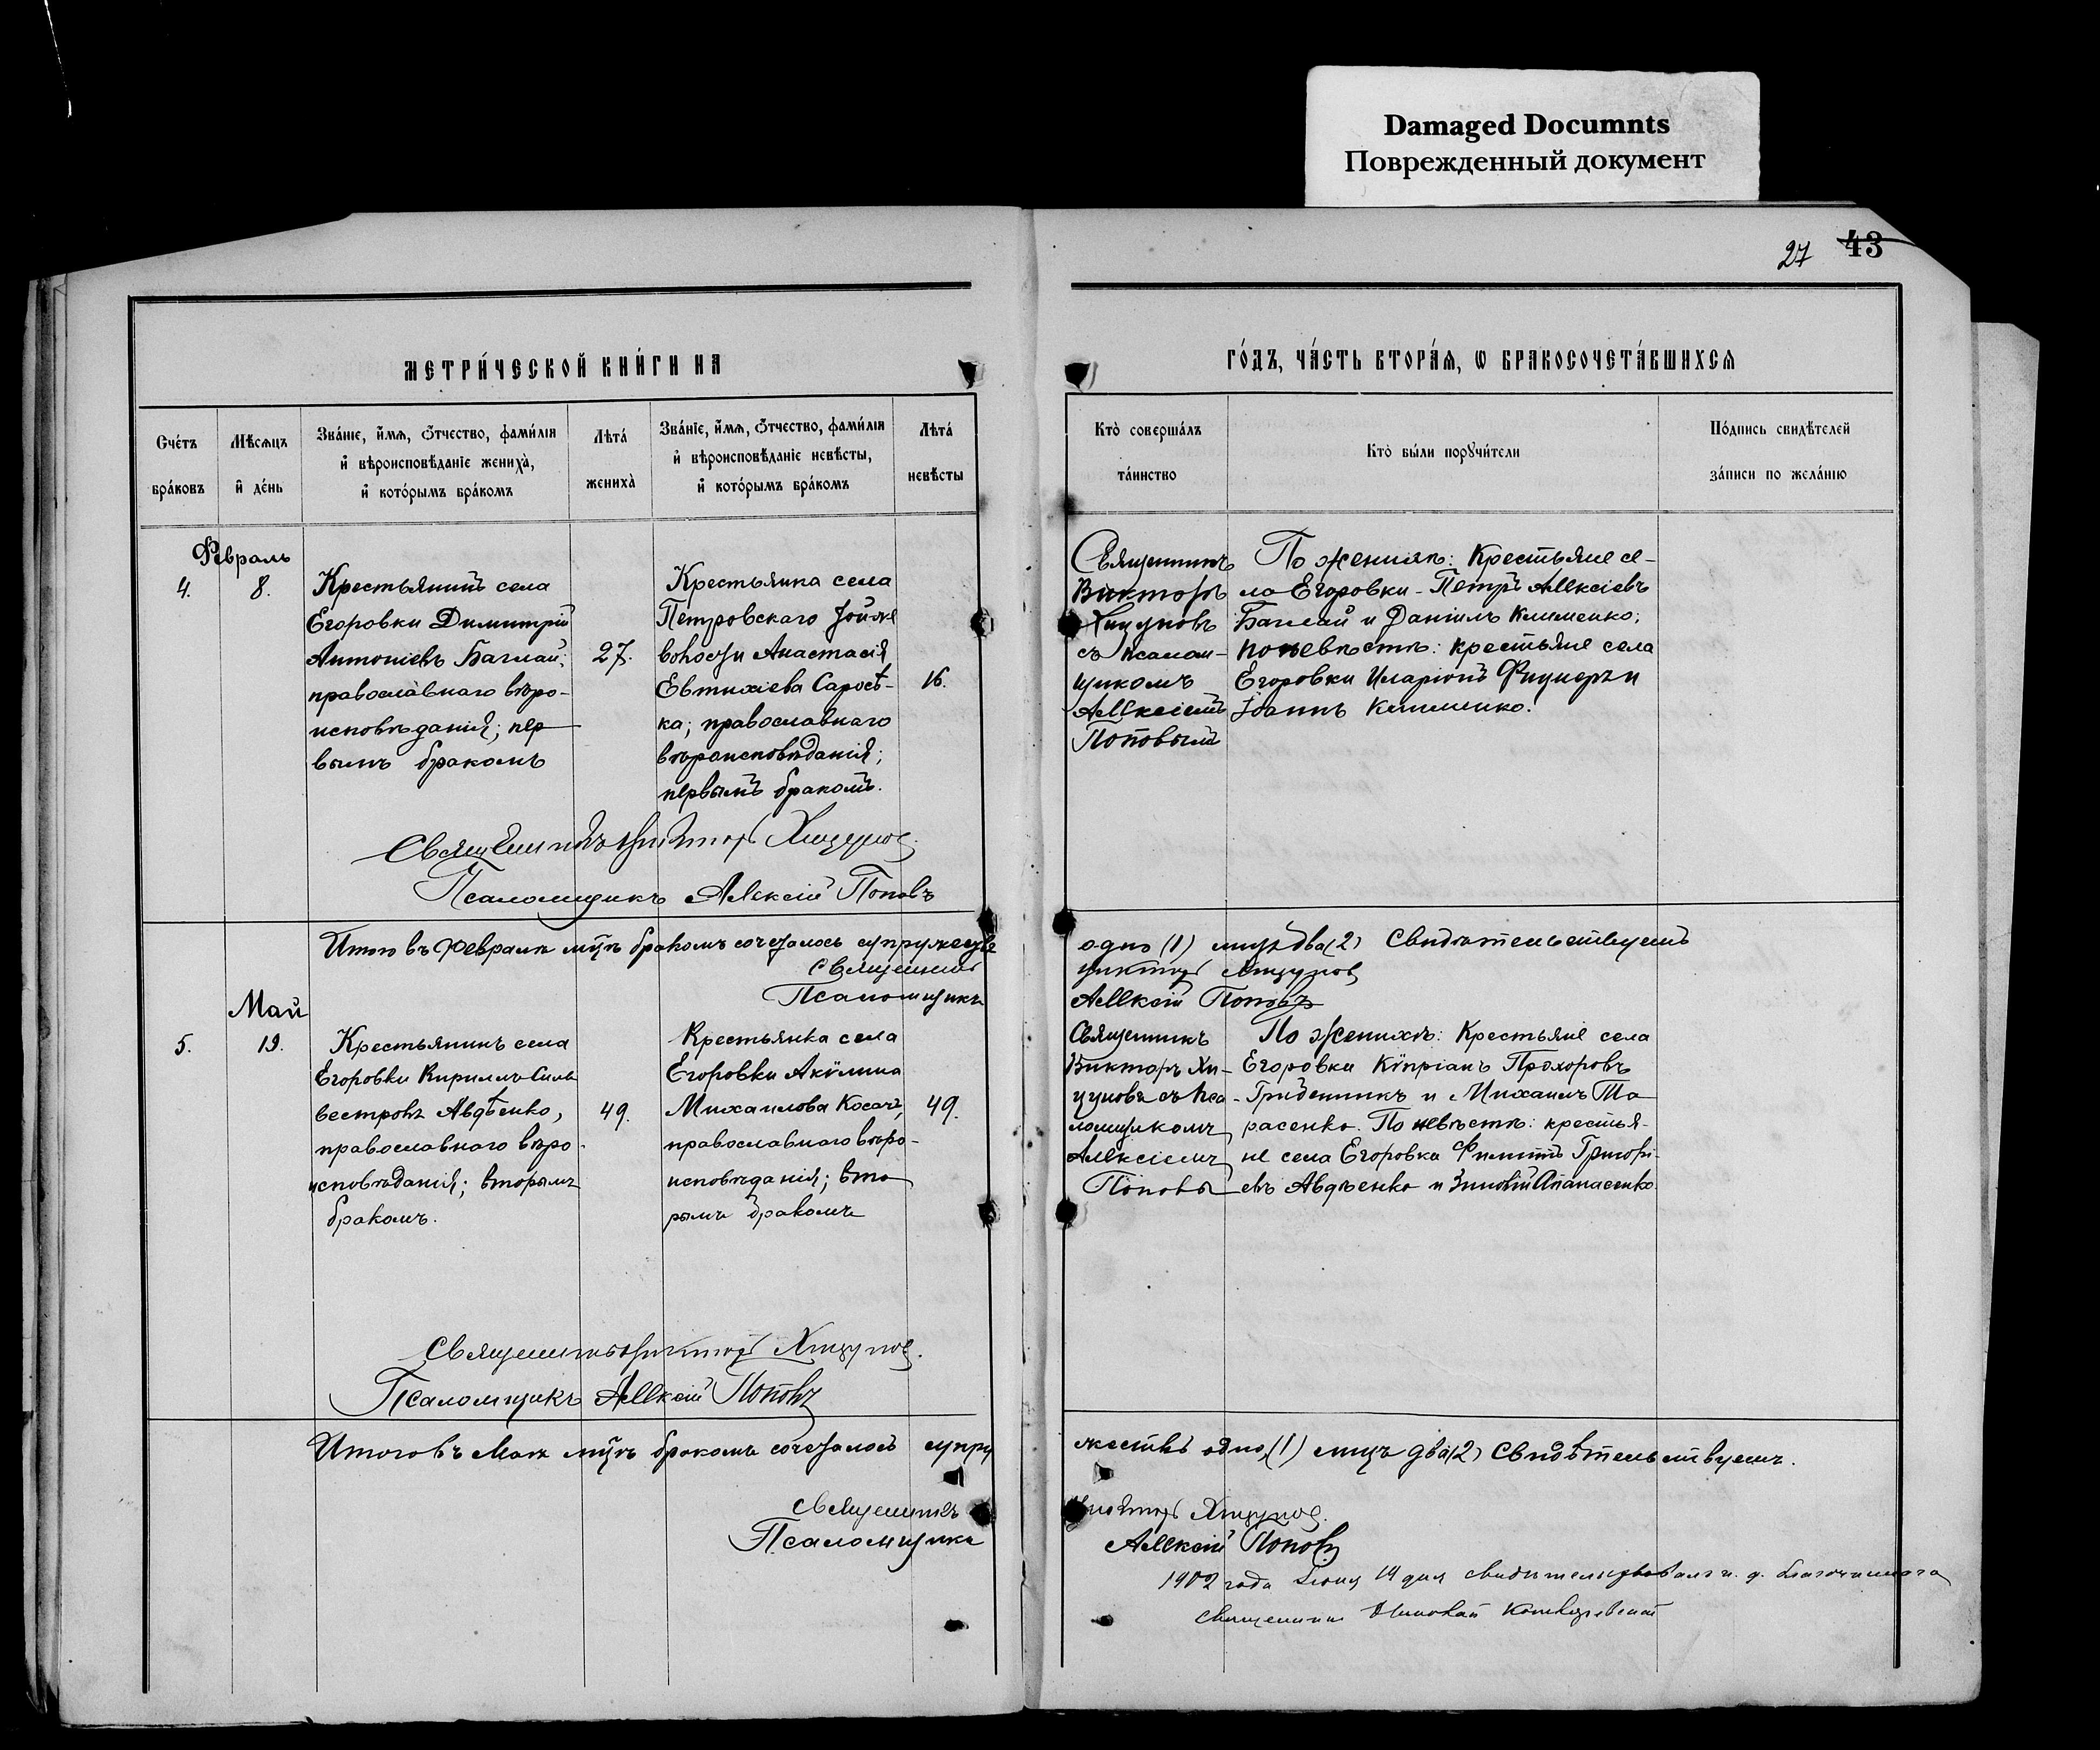 Damaged Documnts
Поврежденный документ
27 43
МЕТРИ́ЧЕСКОЙ КНИ́ГИ НА
ГО́ДЪ, ЧА́СТЬ ВТОРА́Ѧ, Ѡ БРАКОСОЧЕТА́ВШИХСѦ
Сче́тъ
бра́ковъ
Мѣ́сѧцъ
и҆ де́нь
Зва́нїе, и҆́мѧ, ѻ҆́тчество, фами́лїѧ
и҆ вѣроисповѣ́данїе жениха̀,
и҆ кото́рымъ бра́комъ
Лѣта̀
жениха̀
Зва́нїе, и҆́мѧ, ѻ҆́тчество, фами́лїѧ
и҆ вѣроисповѣ́данїе невѣ́сты,
и҆ кото́рымъ бра́комъ
Лѣта̀
невѣ́сты
Кто̀ соверша́лъ
та́инство
Кто̀ бы́ли порꙋчи́тели
По́дпись свидѣ́телей
за́писи по жела́нїю
Февраль
4.
8.
Крестьянинъ села
Егоровки Димитрій
Антоніевъ Баглай;
православнаго вѣро-
исповѣданія; пер
вымъ бракомъ
27.
Крестьянка села
Петровскаго
волости Анастасія
Евтихіева
ка; православнаго
вѣроисповѣданія;
первымъ бракомъ.
16.
Священникъ
Викторъ
Хицуновъ
съ псалом-
щикомъ
Алексіемъ
Поповымъ
По женихѣ: Крестьяне се-
ла Егоровки - Петръ Алексіевъ
Баглай и Даніилъ Клименко;
по невѣстѣ: крестьяне села
Егоровки Иларіонъ и
Іоаннъ Клименко.
Священникъ Викторъ Хицуновъ
Псаломщикъ Алексій Поповъ
Итого въ Февралѣ м̃цѣ бракомъ сочеталось супружествъ
одно (1) лицъ два (2) Свидѣтельствуемъ
Священникъ
Викторъ Хицуновъ
Псаломщикъ
Алексій Поповъ
Май
5.
19.
Крестьянинъ села
Егоровки Кириллъ Силь
вестровъ Авдѣенко,
православнаго вѣро-
исповѣданія; вторымъ
бракомъ.
49.
Крестьянка села
Егоровки Акѵлина
Михаилова Косачъ,
православнаго вѣро-
исповѣданія; вто
рымъ бракомъ
49.
Священникъ
Викторъ Хи-
цуновъ съ пса-
ломщикомъ
Алексіемъ
Поповы
По женихѣ: Крестьяне села
Егоровки Кѵпріанъ Прохоровъ
Гриденникъ и Михаилъ Та
расенко. По невѣстѣ: крестья-
не села Егоровка Филиппъ Григорі-
евъ Авдѣенко и Зиновій Апанасенко.
Священникъ Викторъ Хицуновъ.
Псаломщикъ Алексій Поповъ
Итого въ Маѣ м̃цѣ бракомъ сочеталось супру
жествъ одно (1) лицъ два (2) Свидѣтельствуемъ.
Священникъ
Викторъ Хицуновъ.
Псаломщикъ
Алексій Поповъ
1902 года Іюня 14 дня свидѣтельствовалъ и. д. благочиннаго
священникъ